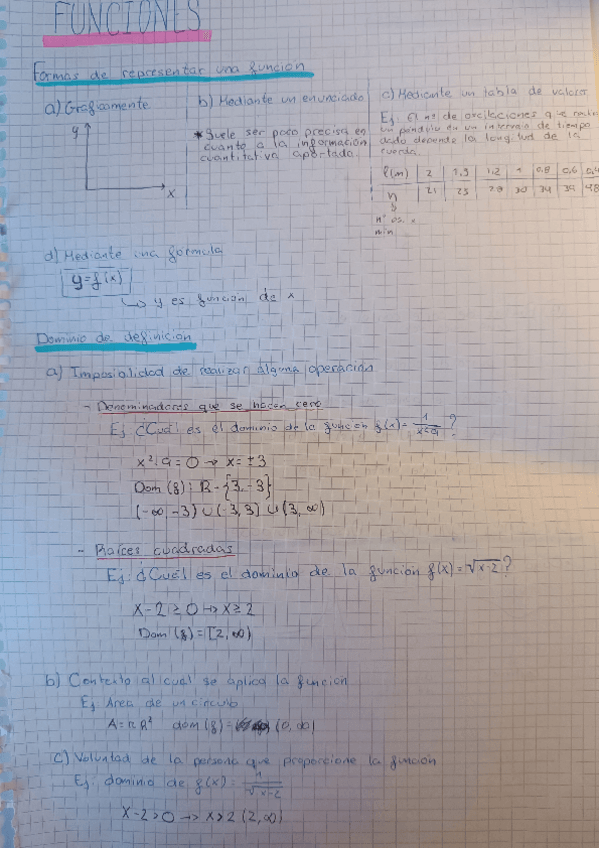 FUNCIONES
Formas de representar una función
a) Graficamente
y
x
b) Mediante un enunciado
* Suele ser poco precisa en
cuanto a la información
cuantitativa aportada
c) Mediante un tabla de valores
Ej. El nº de oscilaciones que
un péndulo en un intervalo de tiempo
dado depende la longitud de la
cuerda.
l(m) 2 1,5 1,2 1 0,8 0,6 0,4
n 21 25 28 30 34 39 48
d) Mediante una formula
y=f(x)
↳ y es función de x
Dominio de definición
a) Imposialidad de realizar alguna operación
- Denominadores que se hacen cero
Ej ¿Cuál es el dominio de la función f(x)= 1/x²-9?
x²-9=0 → x=±3
Dom (f): R-{3,-3}
(-∞,-3)∪(-3,3]∪(3,∞)
- Raíces cuadradas
Ej: ¿Cuál es el dominio de la función f(x)=√x-2?
x-2≥0 → x≥2
Dom (f)=[2,∞)
b) Contexto al cual se aplica la función
Ej Area de un circulo
A=πR² dom (f)= (0,∞)
c) Voluntad de la persona que proporcione la función
Ej: dominio de f(x)= 1/√x-2
x-2>0 → x>2 (2,∞)